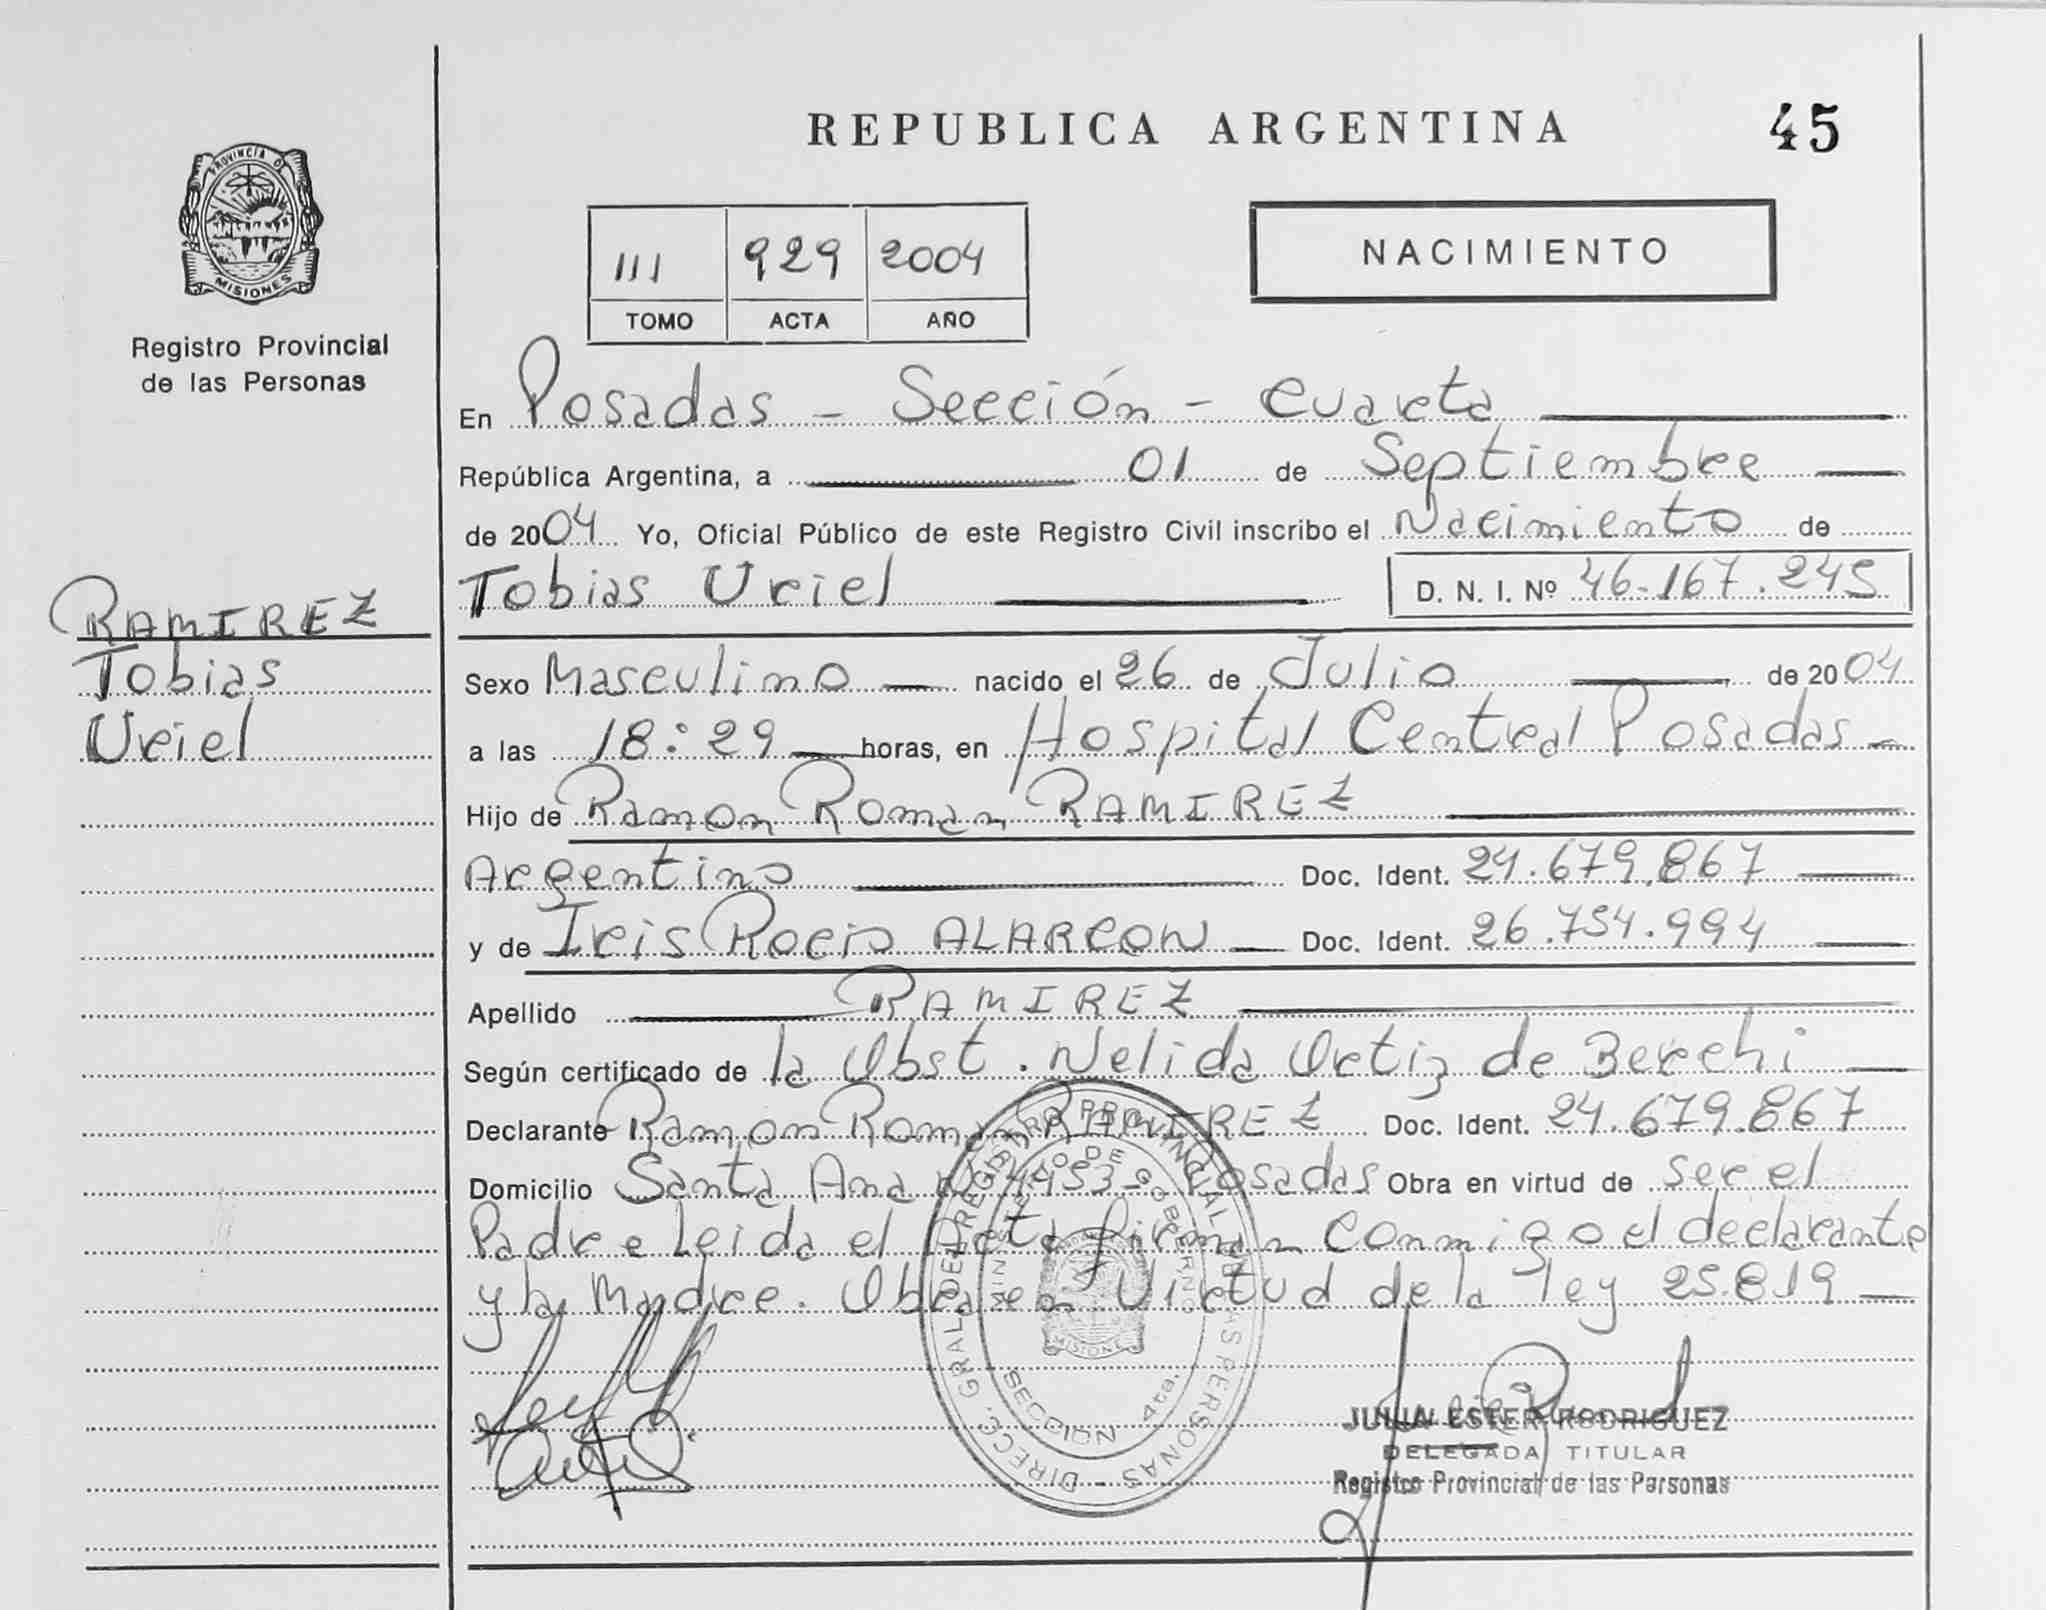 REPUBLICA ARGENTINA
45
PROVINCIA DE
MISIONES
Registro Provincial
de las Personas
III 929 2004
TOMO ACTA AÑO
NACIMIENTO
En Posadas - Sección - Cuarta
República Argentina, a 01 de Septiembre
de 2004 Yo, Oficial Público de este Registro Civil inscribo el Nacimiento de
Tobias Uriel D. N. I. Nº 46.167.245
RAMIREZ
Tobias
Uriel
Sexo Masculino nacido el 26 de Julio de 2004
a las 18:29 horas, en Hospital Central Posadas
Hijo de Ramon Roman RAMIREZ
Argentino Doc. Ident. 24.679.867
y de Iris Rocio ALARCON Doc. Ident. 26.754.994
Apellido RAMIREZ
Según certificado de la Obst. Nelida Ortiz de Berchi
Declarante Ramon Roman RAMIREZ Doc. Ident. 24.679.867
Domicilio Santa Ana Nº 4453 - Posadas Obra en virtud de ser el
Padre Leida el Acta firman conmigo el declarante
y la Madre. Obrase en Virtud de la ley 25.819
DIRECC. GRAL. DEL REGISTRO PROVINCIAL DE LAS PERSONAS
MINISTERIO DE GOBIERNO
MISIONES
SECCION 4ta.
JULIA ESTER RODRIGUEZ
DELEGADA TITULAR
Registro Provincial de las Personas